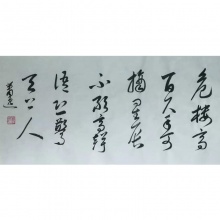 危樓高
百尺手可
摘星辰
不敢高聲
語恐驚
天上人